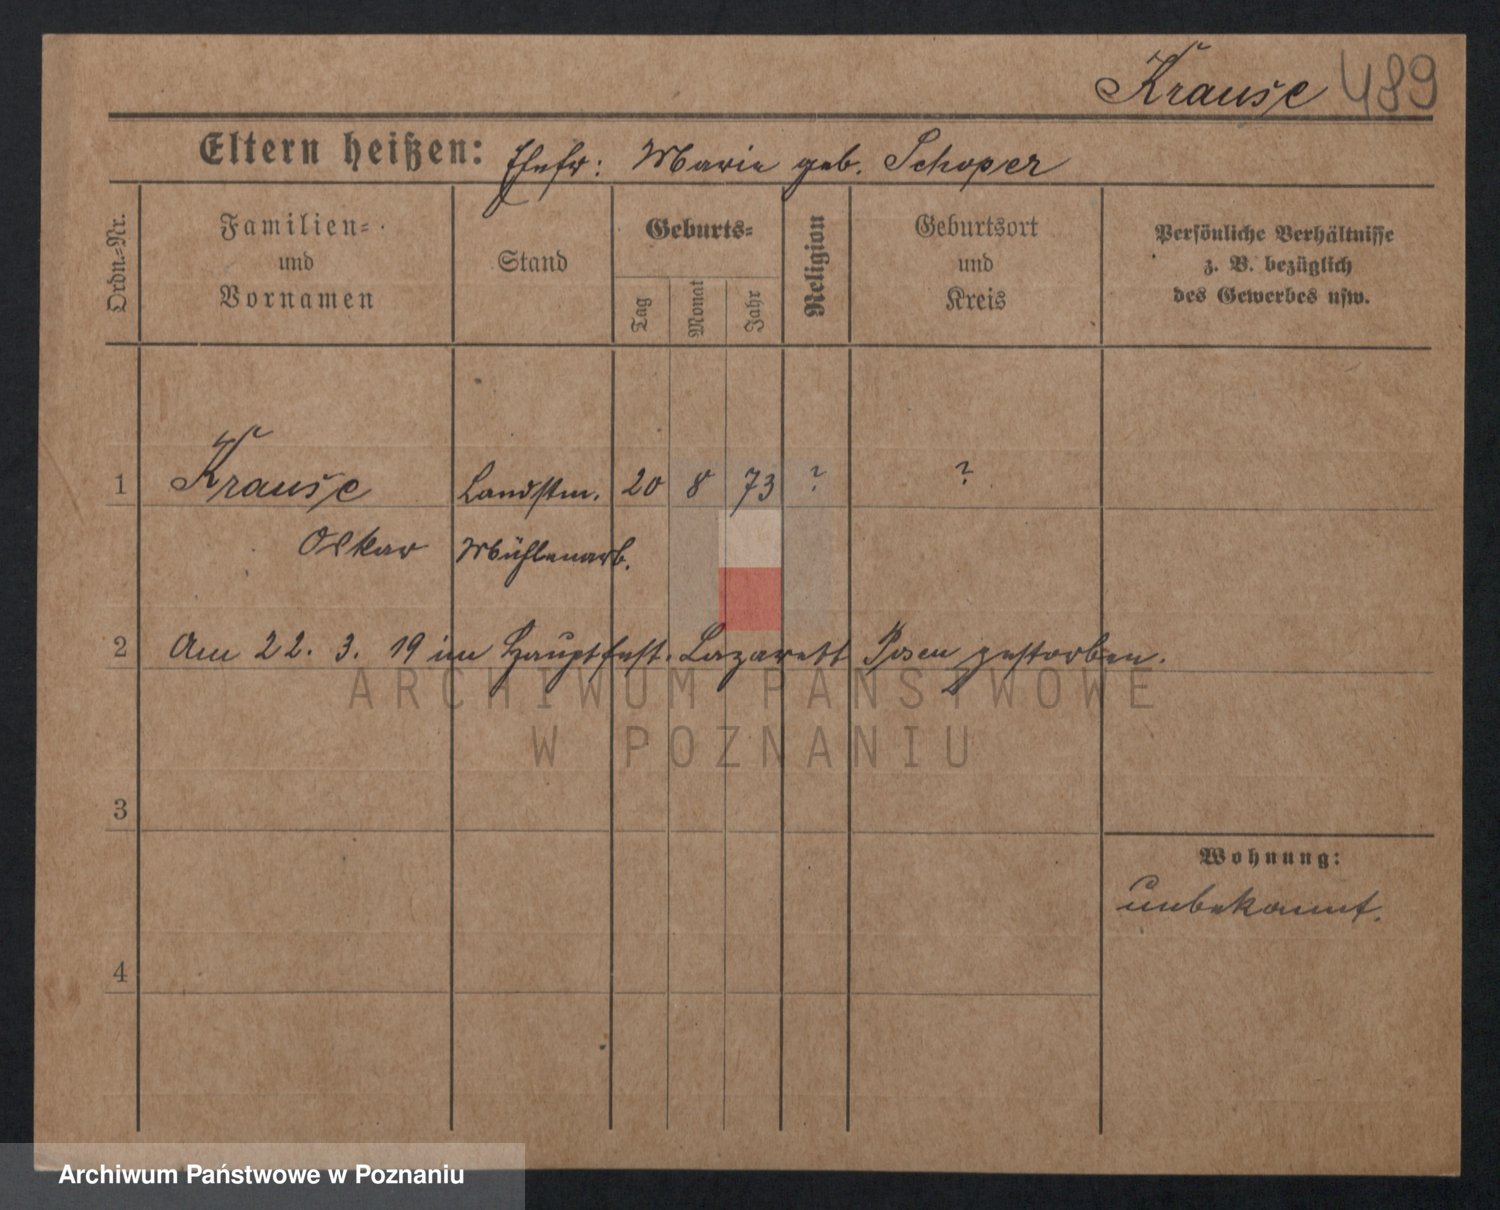 Krause 489
Eltern heißen: Ehefr: Marie geb. Schoper
Ordn.-Nr.
Familien- und Vornamen
Stand
Geburts-
Tag
Monat
Jahr
Religion
Geburtsort und Kreis
Persönliche Verhältnisse
z. B. bezüglich
des Gewerbes usw.
1 Krause Landstm. 20 8 73 ? ?
Oskar Mühlenarb.
2 Am 22. 3. 19 im Hauptfest. Lazarett Posen gestorben.
ARCHIWUM PAŃSTWOWE
W POZNANIU
3
Wohnung:
unbekannt.
4
Archiwum Państwowe w Poznaniu